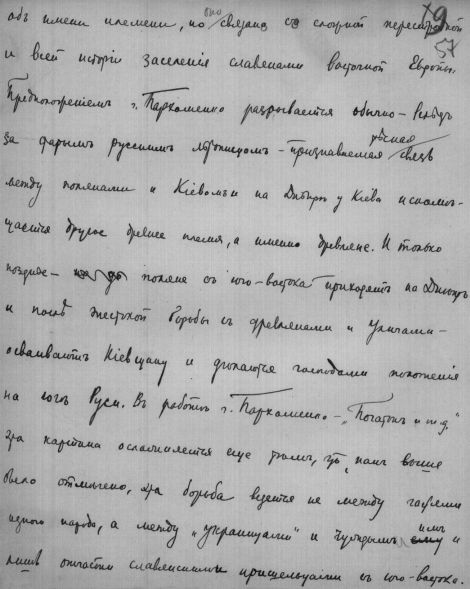 57
объ имени племени, но оно связано со сложной перестройкой
и всей исторіи заселенія славянами восточной Европы.
Предположеніемъ г. Пархоменко разрывается обычно – вслѣдъ
за старымъ русскимъ лѣтописцомъ – признаваемая тѣсная связь
между полянами и Кіевомъ и на Днѣпрѣ у Кіева
щается другое древнее племя, а именно древляне. И только
позднѣе – поляне съ юго-востока приходятъ на Днѣпръ
и послѣ жестокой борьбы съ древлянами и уличами –
осваиваютъ Кіевщину и дѣлаются господами положенія
на югѣ Руси. Въ работѣ г. Пархоменко – „
эта картина осложняется еще тѣмъ, что, какъ выше
было отмѣчено, эта борьба ведется не между
одного народа, а между „украинцами“ и чуждымъ имъ и
лишь отчасти славянскими пришельцами съ юго-востока.